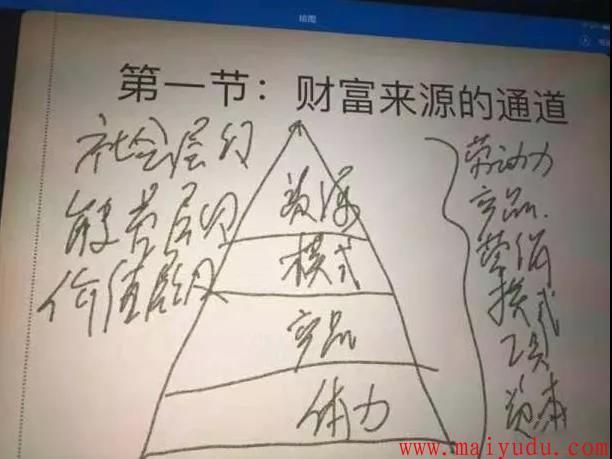 绘图
第一节：财富来源的通道
社会层
层
价值
资源
模式
产品
体力
劳动力
产品.
营销
模式
工具
资本
www.maiyudu.com